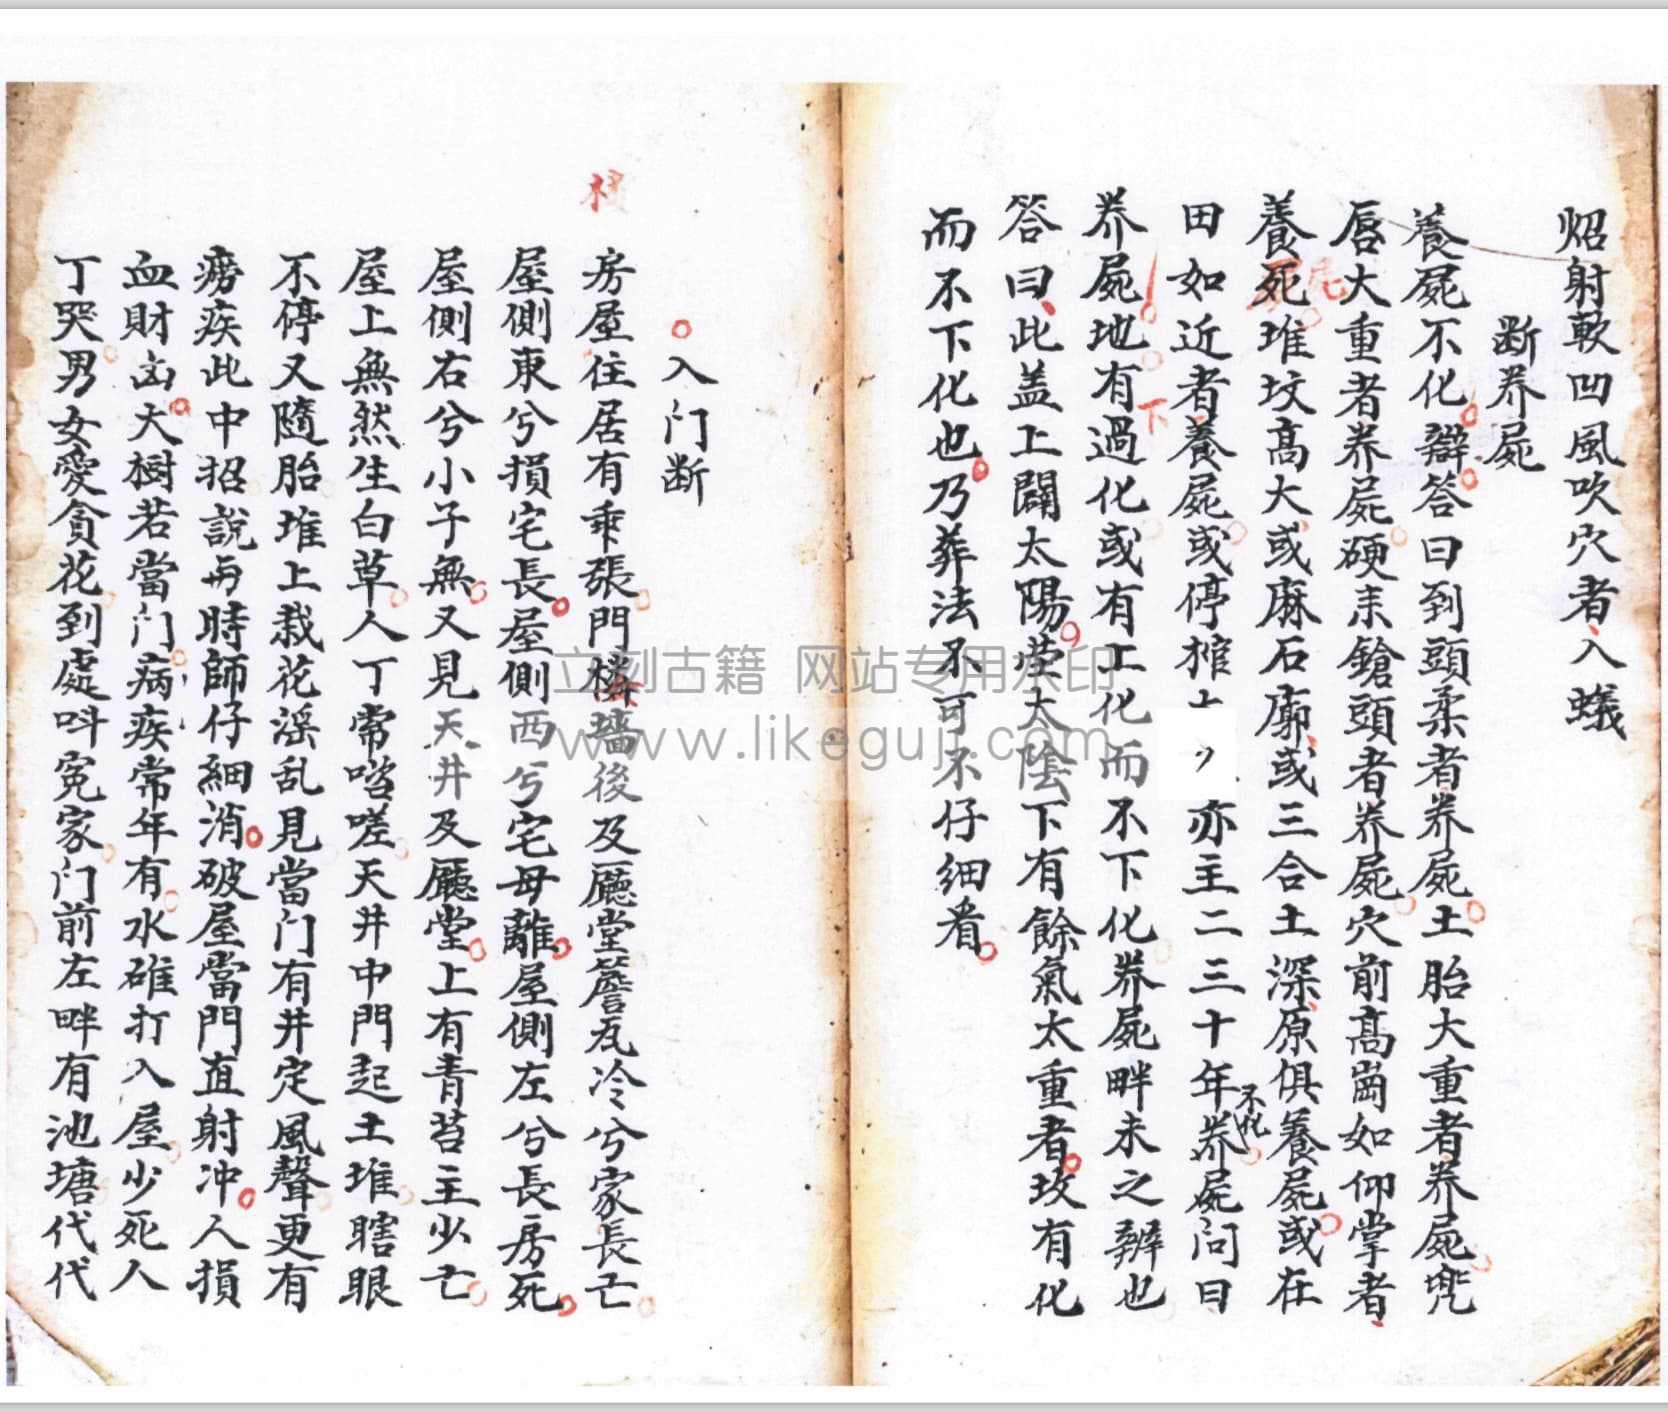 炤射軟凹風吹穴者入蟻
断养屍
養屍不化辯答曰到頭柔者养屍土胎大重者养屍兜
唇大重者养屍硬来鎗頭者养屍穴前高崗如仰掌者
養死堆坟高大或麻石廓或三合土深原俱養屍或在
屍
田如近者養屍或停棺 亦主二三十年养屍問曰
不化
养屍地有過化或有工化而不下化养屍畔未之辨也
下
答曰此盖上闢太陽 太陰下有餘氣太重者坟有化
而不下化也乃葬法不可不仔細看
入门断
房屋住居有乖張門 墻後及廳堂簷瓦冷兮家長亡
屋側東兮損宅長屋側西兮宅母離屋側左兮長房死
屋側右兮小子無又見天井及廳堂上有青苔主少亡
屋上無然生白草人丁常嗞嗟天井中門起土堆瞎眼
不停又隨胎堆上栽花淫乱見當门有井定風聲更有
痨疾此中招說与時師仔細消破屋當門直射冲人損
血財凶大樹若當门病疾常年有水碓打入屋少死人
丁哭男女愛貪花到處呌冤家门前左畔有池塘代代
立刻古籍 网站专用水印
www.likeguji.com